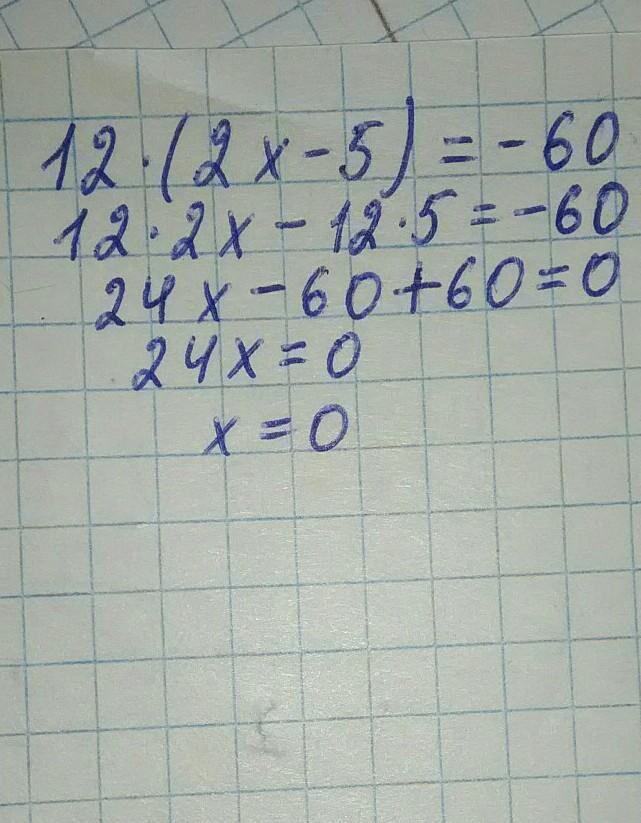 12·(2x-5)=-60
12·2x-12·5=-60
24x-60+60=0
24x=0
x=0